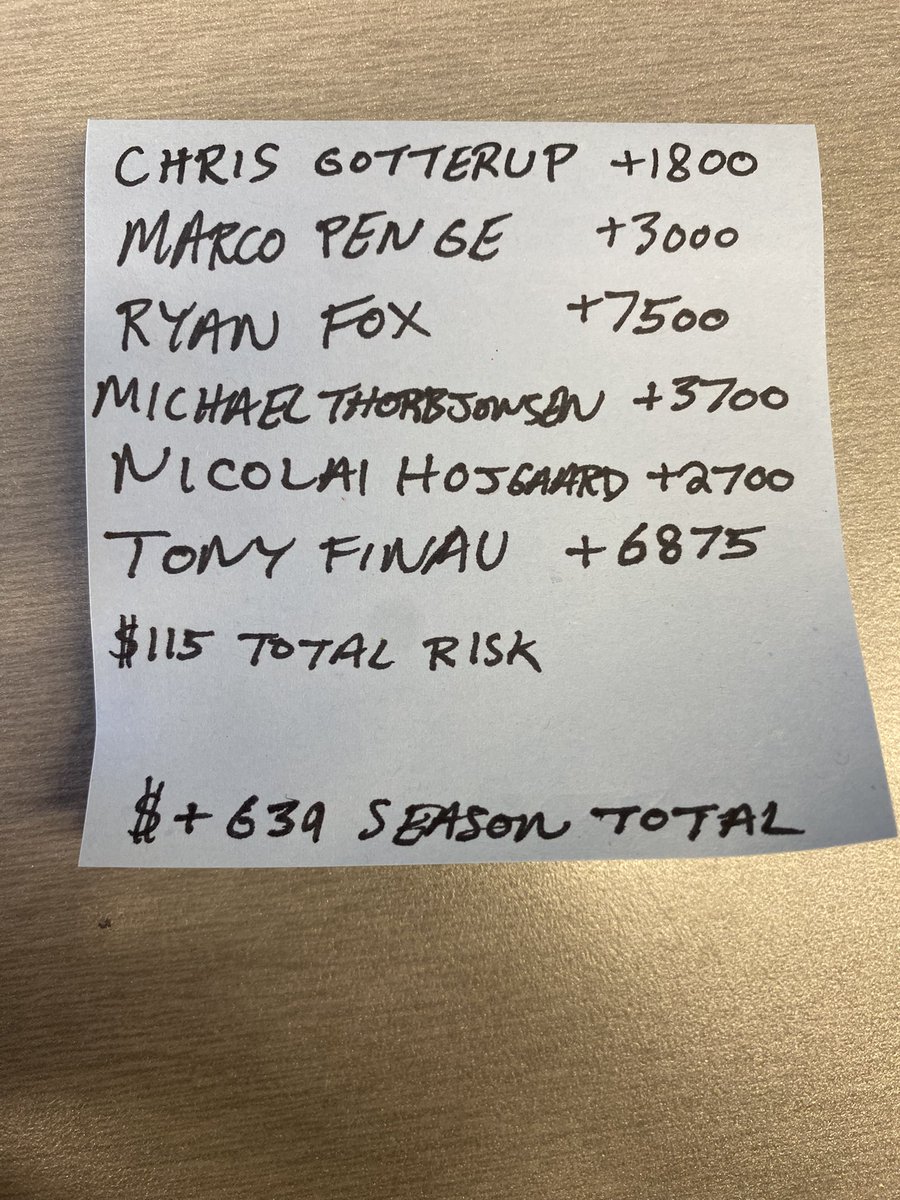 CHRIS GOTTERUP +1800
MARCO PENGE +3000
RYAN FOX +7500
MICHAEL THORBJONSEN +3700
NICOLAI HOJGAARD +2700
TONY FINAU +6875
$115 TOTAL RISK
$+639 SEASON TOTAL